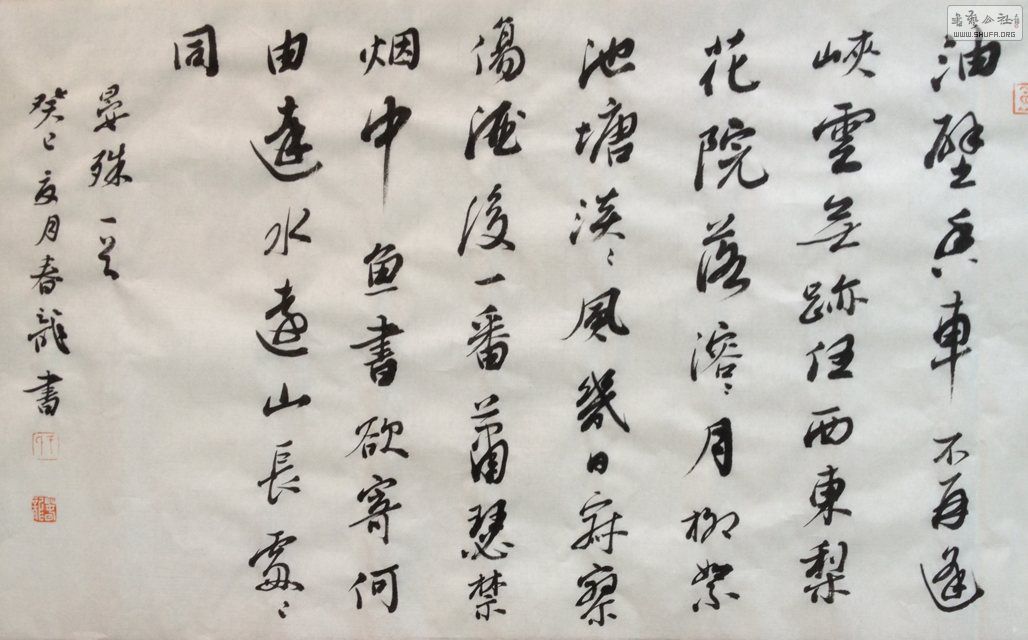 油壁香車不再逢
峽雲無跡任西東梨
花院落溶々月柳絮
池塘淡々風幾日寂寥
傷酒後一番蕭瑟禁
烟中魚書欲寄何
由達水遠山長處々
同
晏殊一首
癸巳夏月春龍書
書藝公社
WWW.SHUFA.ORG